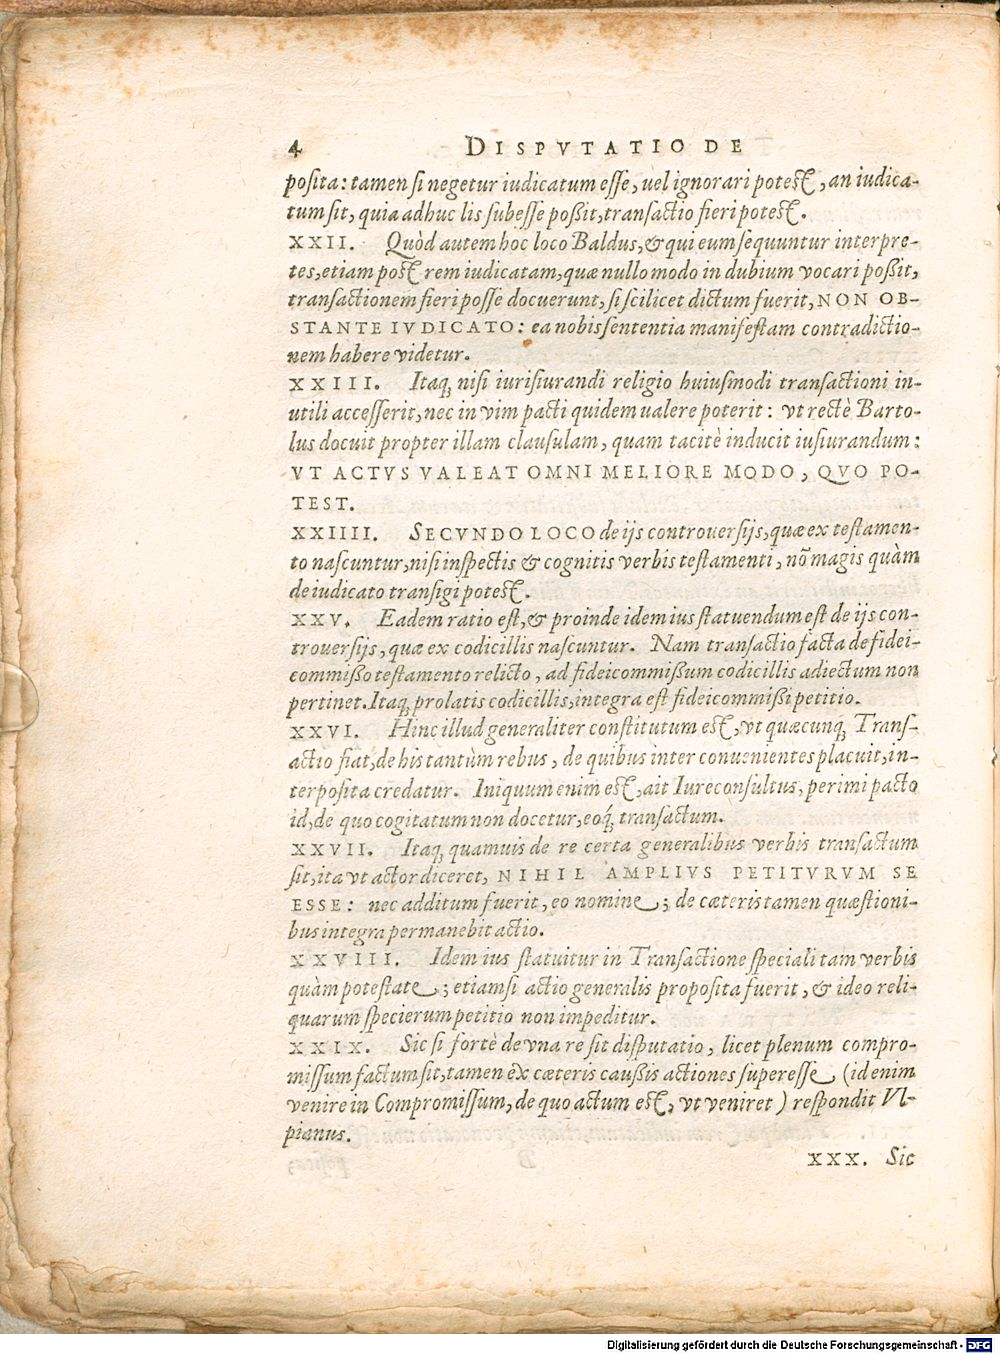 4 DISPVTATIO DE
posita: tamen si negetur iudicatum esse, uel ignorari potest, an iudica-
tum sit, quia adhuc lis subesse poßit, transactio fieri potest.
XXII. Quòd autem hoc loco Baldus, & qui eum sequuntur interpre-
tes, etiam post rem iudicatam, quæ nullo modo in dubium vocari poßit,
transactionem fieri posse docuerunt, si scilicet dictum fuerit, NON OB-
STANTE IVDICATO: ea nobis sententia manifestam contradictio-
nem habere videtur.
XXIII. Itaq; nisi iurisiurandi religio huiusmodi transactioni in-
utili accesserit, nec in vim pacti quidem ualere poterit: vt rectè Barto-
lus docuit propter illam clausulam, quam tacitè inducit iusiurandum:
VT ACTVS VALEAT OMNI MELIORE MODO, QVO PO-
TEST.
XXIIII. SECVNDO LOCO de ijs controuersijs, quæ ex testamen-
to nascuntur, nisi inspectis & cognitis verbis testamenti, nõ magis quàm
de iudicato transigi potest.
XXV. Eadem ratio est, & proinde idem ius statuendum est de ijs con-
trouersijs, quæ ex codicillis nascuntur. Nam transactio facta de fidei-
commißo testamento relicto, ad fideicommißum codicillis adiectum non
pertinet. Itaq; prolatis codicillis, integra est fideicommißi petitio.
XXVI. Hinc illud generaliter constitutum est, vt quæcunq; Trans-
actio fiat, de his tantùm rebus, de quibus inter conuenientes placuit, in-
terposita credatur. Iniquum enim est, ait Iureconsultus, perimi pacto
id, de quo cogitatum non docetur, eoq́; transactum.
XXVII. Itaq; quamuis de re certa generalibus verbis transactum
sit, ita vt actor diceret, NIHIL AMPLIVS PETITVRVM SE
ESSE: nec additum fuerit, eo nomine; de cæteris tamen quæstioni-
bus integra permanebit actio.
XXVIII. Idem ius statuitur in Transactione speciali tam verbis
quàm potestate; etiamsi actio generalis proposita fuerit, & ideo reli-
quarum specierum petitio non impeditur.
XXIX. Sic si fortè de vna re sit disputatio, licet plenum compro-
missum factum sit, tamen ex cæteris caußis actiones superesse (id enim
venire in Compromissum, de quo actum est, vt veniret) respondit Vl-
pianus.
XXX. Sic
Digitalisierung gefördert durch die Deutsche Forschungsgemeinschaft - DFG